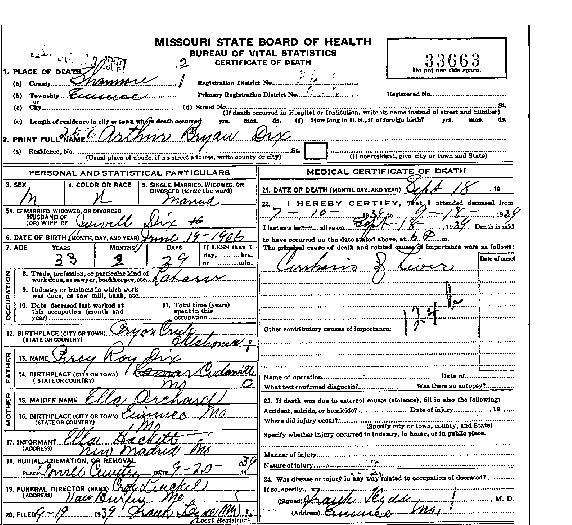 MISSOURI STATE BOARD OF HEALTH
BUREAU OF VITAL STATISTICS
CERTIFICATE OF DEATH
33663
Do not use this space.
1. PLACE OF DEATH
2
(a) County Shannon 1 Registration District No.
(b) Township Eminence Primary Registration District No. Registered No.
(c) City (d) Street No. St.
(If death occurred in Hospital or Institution, write its name instead of street and number)
(e) Length of residence in city or town where death occurred yrs. mos. ds. (f) How long in U. S., if of foreign birth? yrs. mos. ds.
2. PRINT FULL NAME Arthur Bryan Dix
(a) Residence, No. St.
(Usual place of abode, if no street address, write county or city) (If nonresident, give city or town and State)
PERSONAL AND STATISTICAL PARTICULARS
3. SEX 4. COLOR OR RACE 5. SINGLE, MARRIED, WIDOWED, OR DIVORCED (write the word)
M W Married
5a. IF MARRIED, WIDOWED, OR DIVORCED
HUSBAND OF
(OR) WIFE OF Dix
6. DATE OF BIRTH (MONTH, DAY, AND YEAR) June 19-1906
7. AGE YEARS MONTHS DAYS IF LESS than 1 day, hrs. or min.
33 2 29
OCCUPATION
8. Trade, profession, or particular kind of work done, as sawyer, bookkeeper, etc.
9. Industry or business in which work was done, as saw mill, bank, etc.
10. Date deceased last worked at this occupation (month and year)
11. Total time (years) spent in this occupation
12. BIRTHPLACE (CITY OR TOWN)
(STATE OR COUNTRY) Oklahoma
FATHER
13. NAME Percy Roy Dix
14. BIRTHPLACE (CITY OR TOWN)
(STATE OR COUNTRY) Mo
MOTHER
15. MAIDEN NAME Ella Orchard
16. BIRTHPLACE (CITY OR TOWN) Eminence Mo
(STATE OR COUNTRY) Mo
17. INFORMANT Ella Hackett
(ADDRESS) New Madrid Mo
18. BURIAL, CREMATION, OR REMOVAL
PLACE DATE 9-20 39
19. FUNERAL DIRECTOR (NAME)
(ADDRESS) Mo
20. FILED 9-19 1939 Frank Hyde MD
Local Registrar
MEDICAL CERTIFICATE OF DEATH
21. DATE OF DEATH (MONTH, DAY, AND YEAR) Sept 18, 19
22. I HEREBY CERTIFY, That I attended deceased from
7-10-1939, to 9-18-1939
I last saw h alive on Sept 18, 1939 Death is said
to have occurred on the date stated above, at 6 P m.
The principal cause of death and related causes of importance were as follows:
Date of onset
Cirrhosis of Liver
124 b
Other contributory causes of importance:
Name of operation Date of
What test confirmed diagnosis? Was there an autopsy?
23. If death was due to external causes (violence), fill in also the following:
Accident, suicide, or homicide? Date of injury 19
Where did injury occur?
(Specify city or town, county, and State)
Specify whether injury occurred in industry, in home, or in public place.
Manner of injury
Nature of injury
24. Was disease or injury in any way related to occupation of deceased?
If so, specify
(Signed) Frank Hyde M. D.
(Address) Eminence Mo.